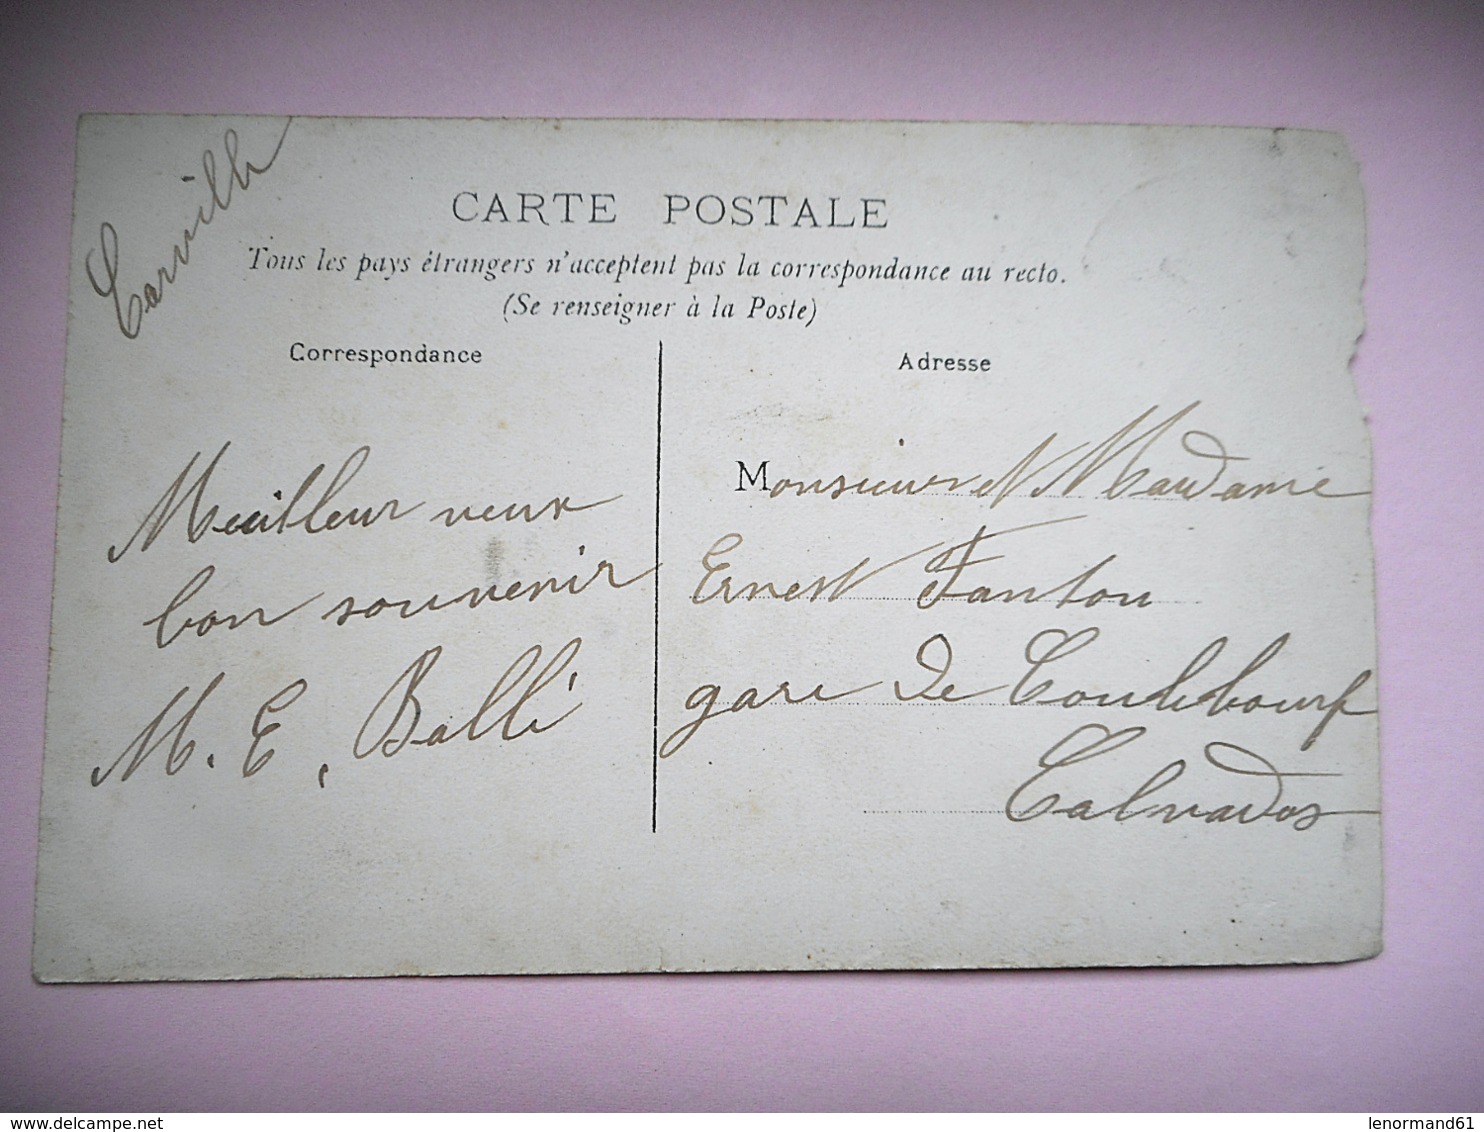 Carville
CARTE POSTALE
Tous les pays étrangers n'acceptent pas la correspondance au recto.
(Se renseigner à la Poste)
Correspondance
Adresse
Meilleur veux
bon souvenir
M. E, Ballé
Monsieur et Madame
Ernest Fanton
gare de Coulibœuf
Calvados
www.delcampe.net
lenormand61